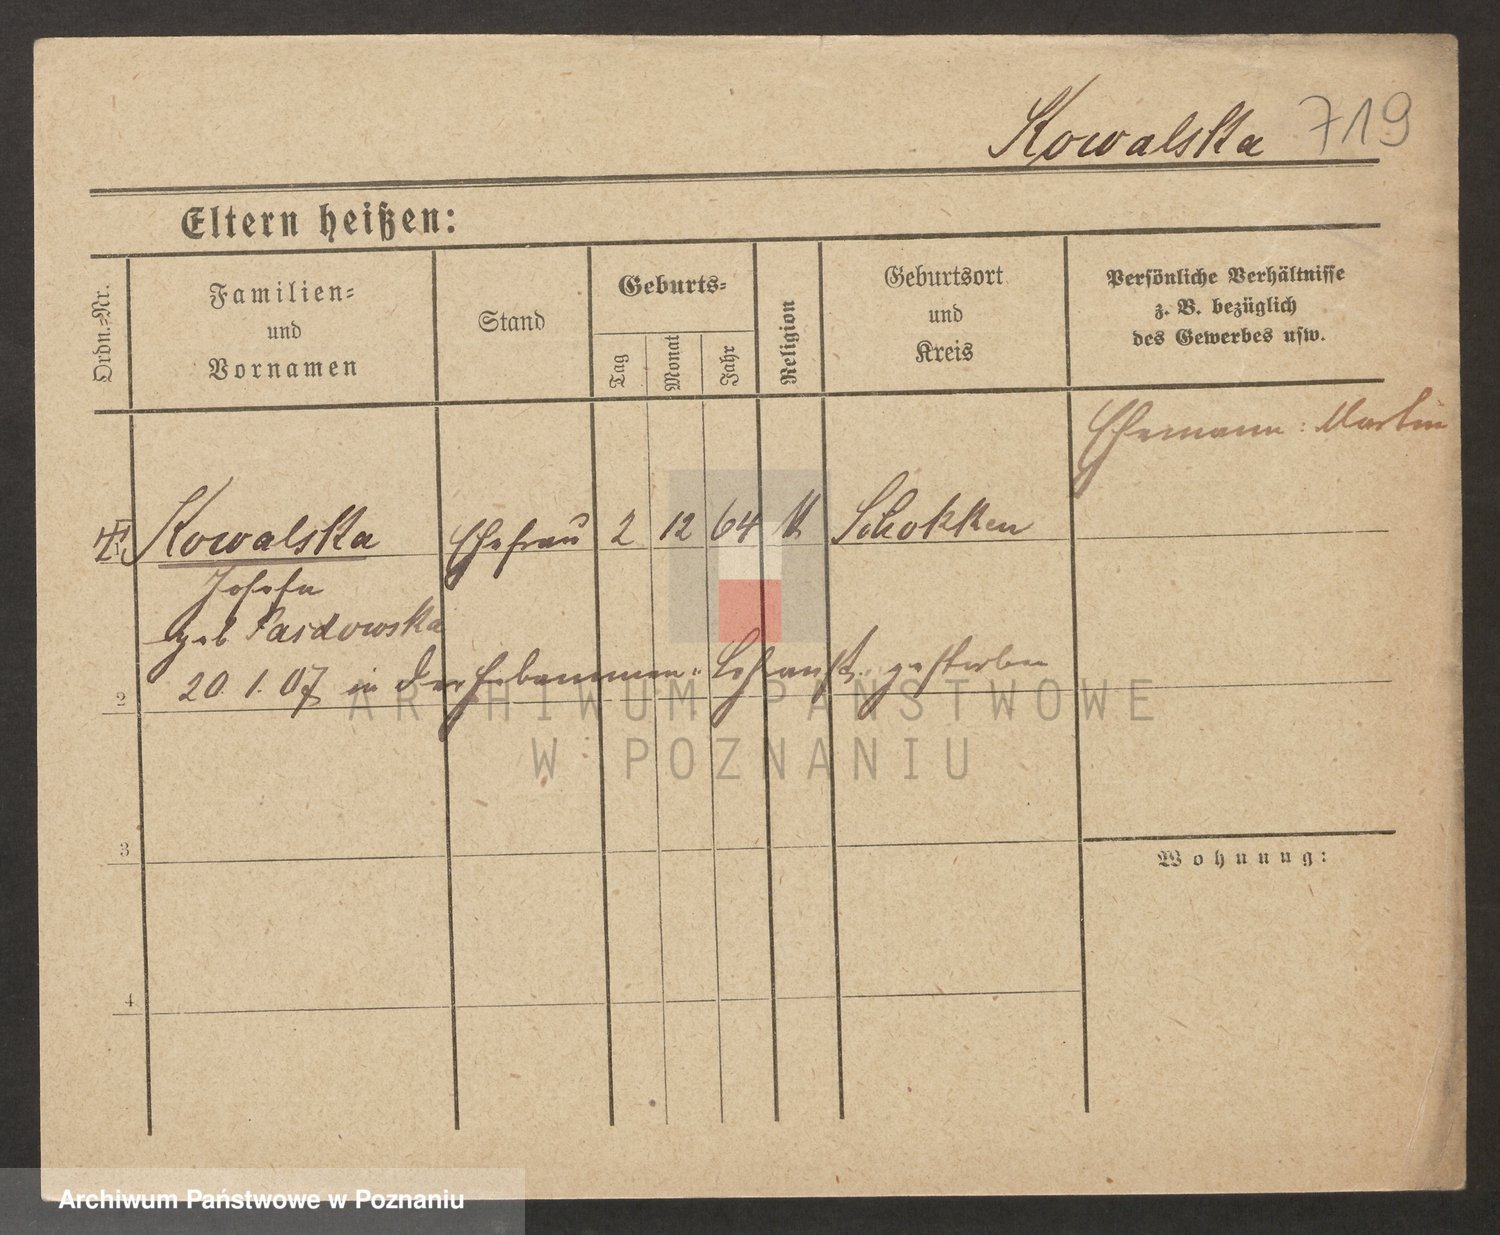 Kowalska 719
Eltern heißen:
Ordn.=Nr.
Familien=
und
Vornamen
Stand
Geburts=
Tag
Monat
Jahr
Religion
Geburtsort
und
Kreis
Persönliche Verhältnisse
z. B. bezüglich
des Gewerbes usw.
Ehemann: Martin
1 Kowalska Ehefrau 2 12 64 k Schokken
Josefa
geb Pasdowska
20. 1. 07 in der Hebammen=Lehranst. gestorben
2
3
Wohnung:
4
ARCHIWUM PAŃSTWOWE
W POZNANIU
Archiwum Państwowe w Poznaniu